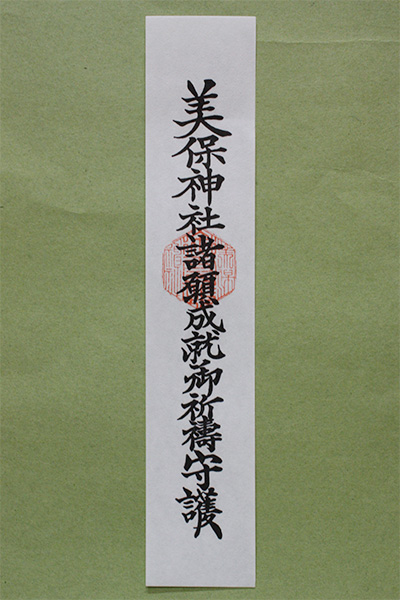 美保神社諸願成就御祈禱守護